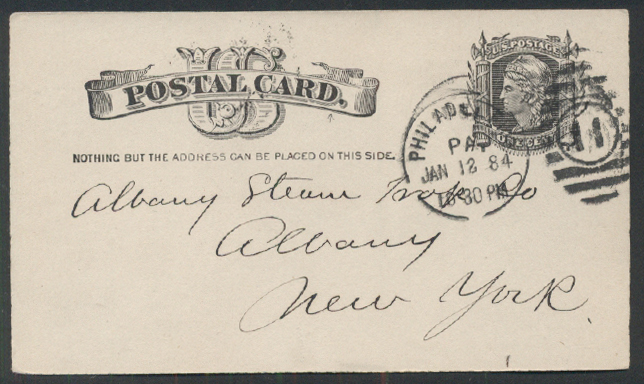 US
POSTAL CARD.
U.S. POSTAGE
ONE CENT
NOTHING BUT THE ADDRESS CAN BE PLACED ON THIS SIDE.
PHILADE
PA
JAN 12 84
30 PM
11
Albany Steam Trap Co
Albany
New York.